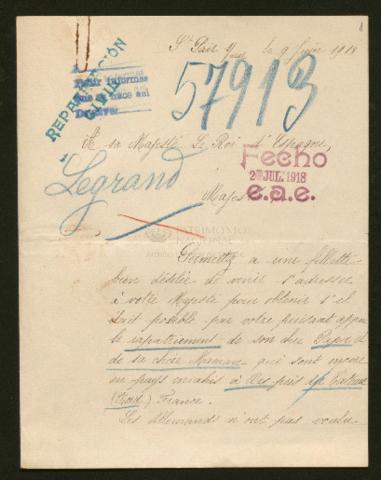 St Pair s/mer le 9 Juin 1918
REPATRIACIÓN
CIVIL
Pedir informes
que se hace así
57913
A sa Majesté Le Roi d'Espagne,
Fecho
20 JUL. 1918
e.a.e.
Legrand
Majesté
PATRIMONIO
NACIONAL
Permettez a une fillette
bien désolée de venir s'adresser
à votre Majesté pour obtenir s'il
était possible par votre puissant appui
le rapatriement de son cher Papa et
de sa chère Maman qui sont encore
en pays envahis à
(Nord) France.
Les Allemands n'ont pas voulu